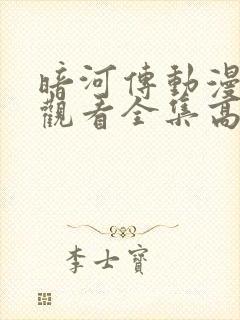 暗河傳動漫
觀看全集高
李士寶